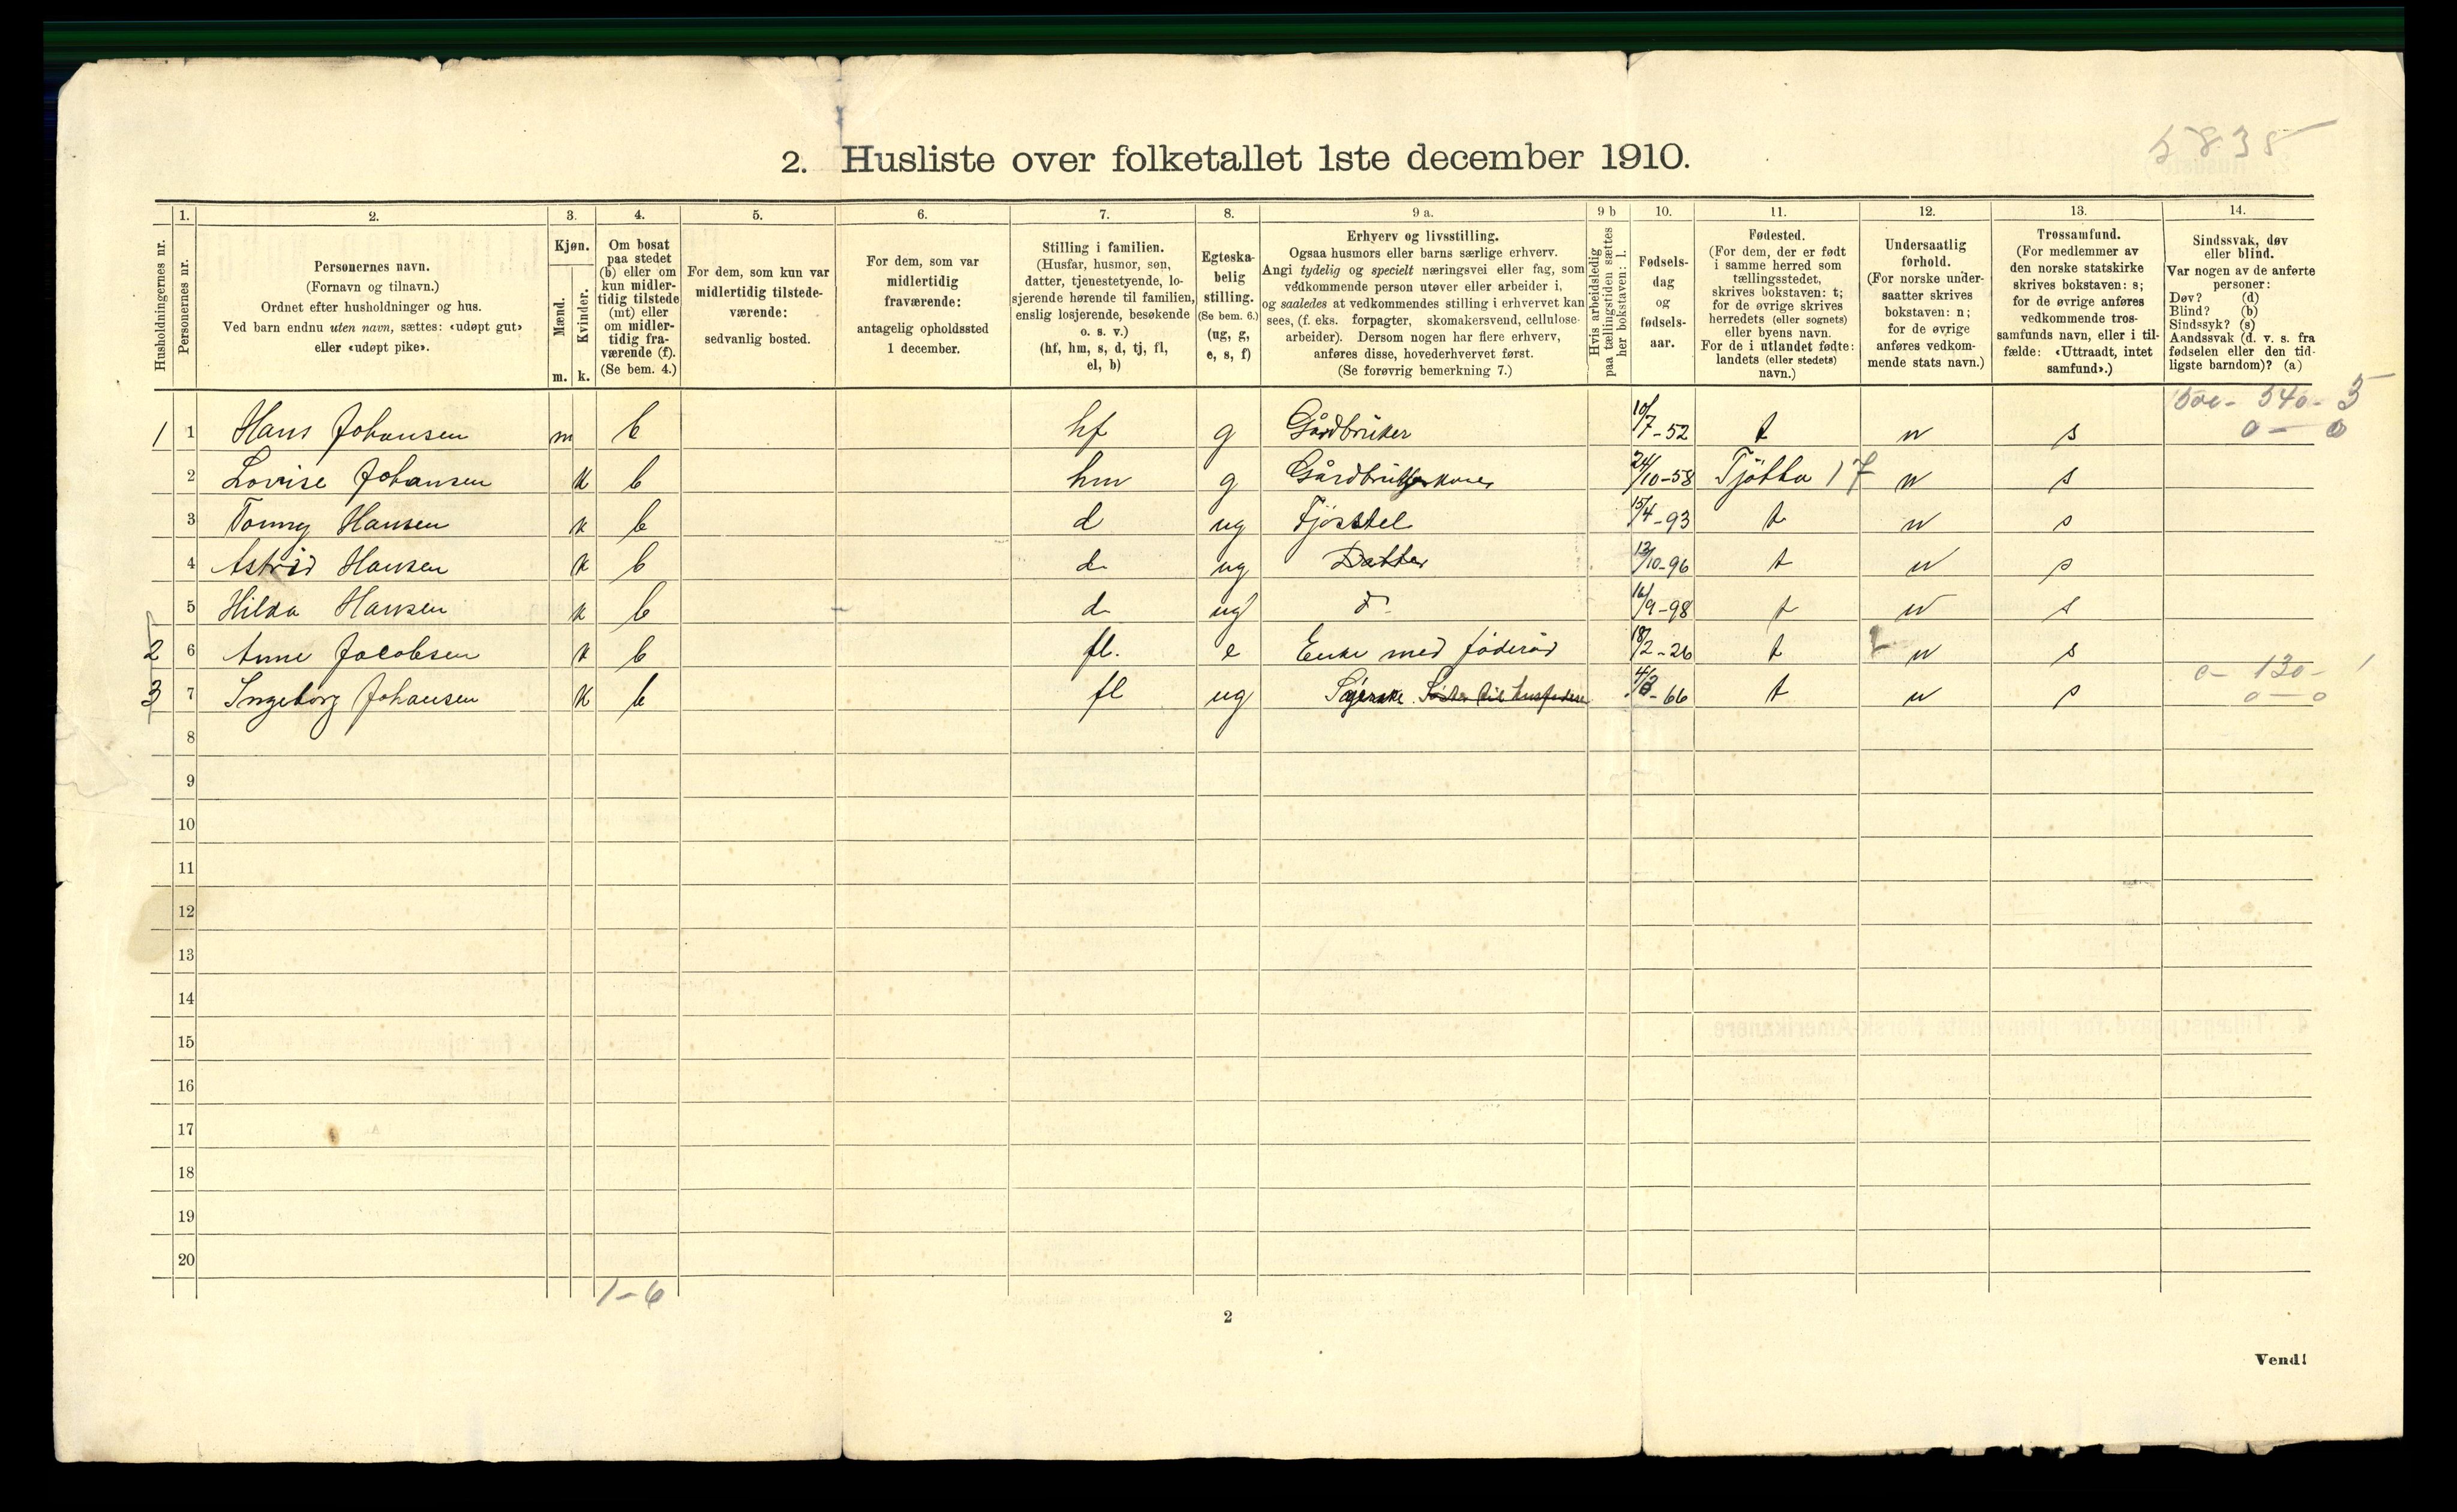 5835
2. Husliste over folketallet 1ste december 1910.
Husholdningernes nr.
1.
Personernes nr.
2.
Personernes navn.
(Fornavn og tilnavn.)
Ordnet efter husholdninger og hus.
Ved barn endnu uten navn, sættes: «udøpt gut»
eller «udøpt pike».
3.
Kjøn.
Mænd.
Kvinder.
m. k.
4.
Om bosat
paa stedet
(b) eller om
kun midler-
tidig tilstede
(mt) eller
om midler-
tidig fra-
værende (f).
(Se bem. 4.)
5.
For dem, som kun var
midlertidig tilstede-
værende:
sedvanlig bosted.
6.
For dem, som var
midlertidig
fraværende:
antagelig opholdssted
1 december.
7.
Stilling i familien.
(Husfar, husmor, søn,
datter, tjenestetyende, lo-
sjerende hørende til familien,
enslig losjerende, besøkende
o. s. v.)
(hf, hm, s, d, tj, fl,
el, b)
8.
Egteska-
belig
stilling.
(Se bem. 6.)
(ug, g,
e, s, f)
9 a.
Erhverv og livsstilling.
Ogsaa husmors eller barns særlige erhverv.
Angi tydelig og specielt næringsvei eller fag, som
vedkommende person utøver eller arbeider i,
og saaledes at vedkommendes stilling i erhvervet kan
sees, (f. eks. forpagter, skomakersvend, cellulose-
arbeider). Dersom nogen har flere erhverv,
anføres disse, hovederhvervet først.
(Se forøvrig bemerkning 7.)
9 b
Hvis arbeidsledig
paa tællingstiden sættes
her bokstaven: l.
10.
Fødsels-
dag
og
fødsels-
aar.
11.
Fødested.
(For dem, der er født
i samme herred som
tællingsstedet,
skrives bokstaven: t;
for de øvrige skrives
herredets (eller sognets)
eller byens navn.
For de i utlandet fødte:
landets (eller stedets)
navn.)
12.
Undersaatlig
forhold.
(For norske under-
saatter skrives
bokstaven: n;
for de øvrige
anføres vedkom-
mende stats navn.)
13.
Trossamfund.
(For medlemmer av
den norske statskirke
skrives bokstaven: s;
for de øvrige anføres
vedkommende tros-
samfunds navn, eller i til-
fælde: «Uttraadt, intet
samfund».)
14.
Sindssvak, døv
eller blind.
Var nogen av de anførte
personer:
Døv? (d)
Blind? (b)
Sindssyk? (s)
Aandssvak (d. v. s. fra
fødselen eller den tid-
ligste barndom)? (a)
540 - 5
1 1 Hans Johansen m b hf g Gårdbruker 10/7-52 t n s 0 - 0
2 Lovise Johansen k b hm g Gårdbrukerkone 24/10-58 Tjøtta 17 n s
3 Tonny Hansen k b d ug Fjøsstel 15/4-93 t n s
4 Astrid Hansen k b d ug Datter 13/10-96 t n s
5 Hilda Hansen k b d ug d 16/9-98 t n s
2 6 Anne Jacobsen k b fl. e Enke med føderåd 18/2-26 t n s
0 - 130 - 1
3 7 Ingeborg Johansen k b fl ug Syerske Søster til husfaderen -66 t n s 0 - 0
8
9
10
11
12
13
14
15
16
17
18
19
20
1-6
2
Vend!